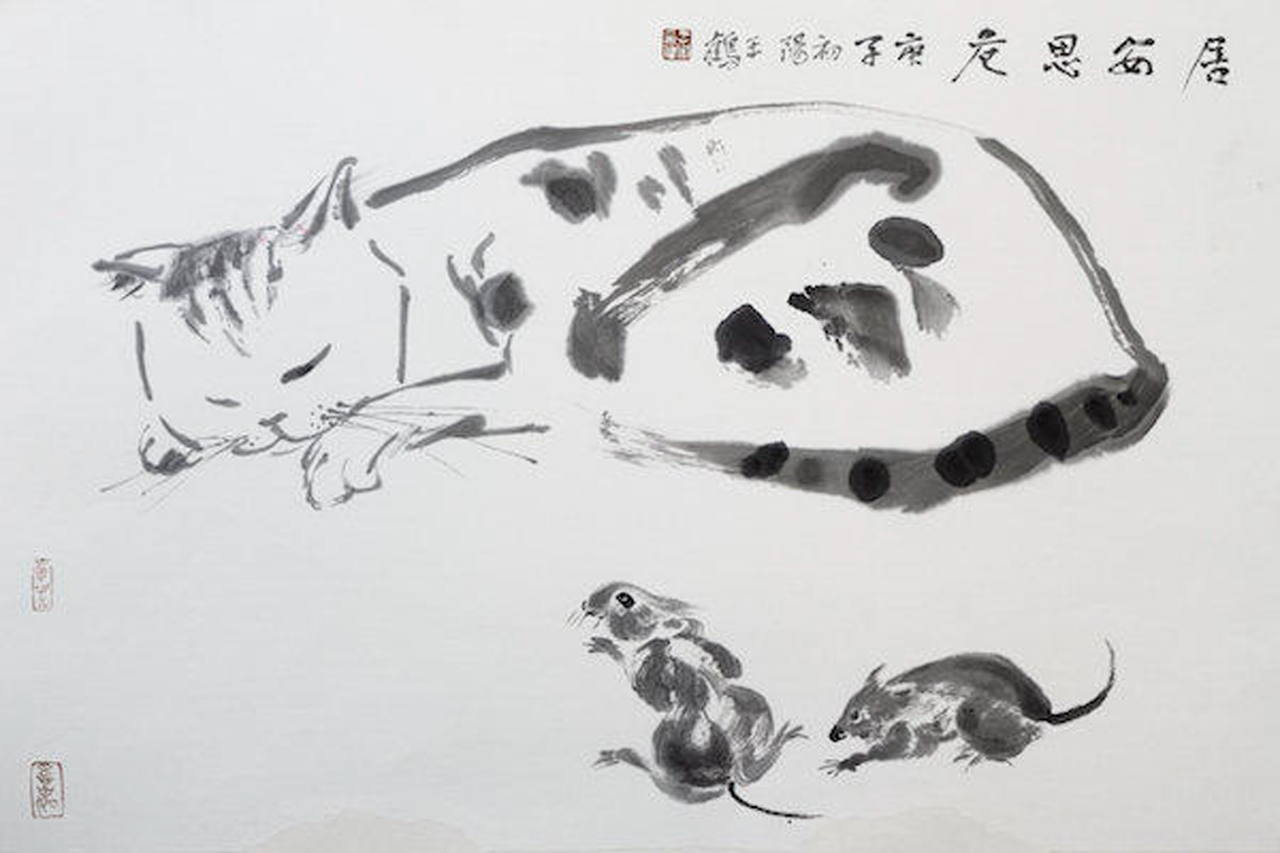 居安思危 庚子初陽 王鶴